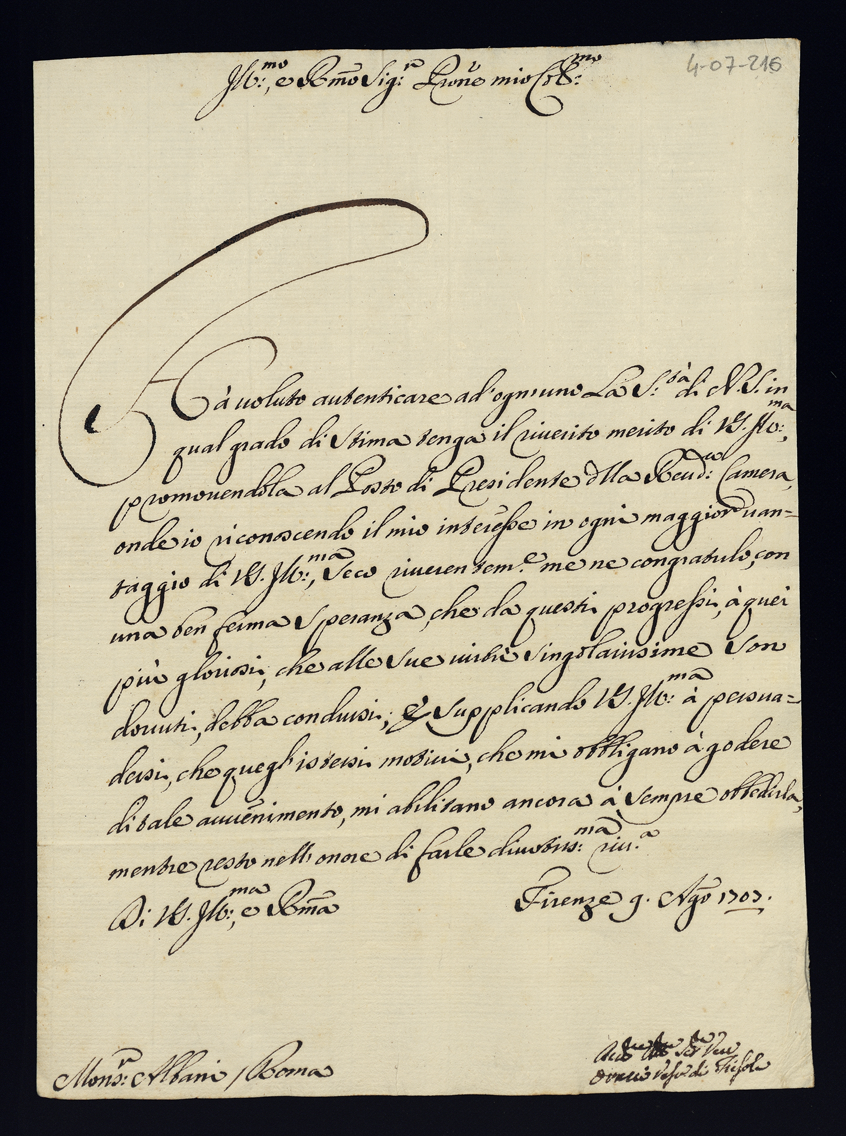 4-07-216
Ill:mo, e Rmo Sig:r Prone mio Col:mo
Hà voluto autenticare ad' ogniuno La S:tà di N. S. in
qual grado di stima tenga il riverito merito di VS. Ill:ma,
promovendola al Posto di Presidente dlla Revd:a Camera,
onde io riconoscendo il mio interesse in ogni maggior van=
taggio di VS. Ill:ma, seco riverentem:e me ne congratulo, con
una ben ferma speranza, che da questi progressi, à quei
più gloriosi, che alle sue virtù singolarissime son
dovuti, debba condursi; E supplicando VS. Ill:ma à persua=
dersi, che quegl' istessi motivi, che mi obbligano à godere
di tale avvenimento, mi abilitano ancora à sempre obbedirla,
mentre resto nell' onore di farle divotiss:ma riv:a
Di VS. Ill:ma, e Rma
Firenze 9. Agto 1707.
Mons:r Albani / Roma
Vesco di Fiesole